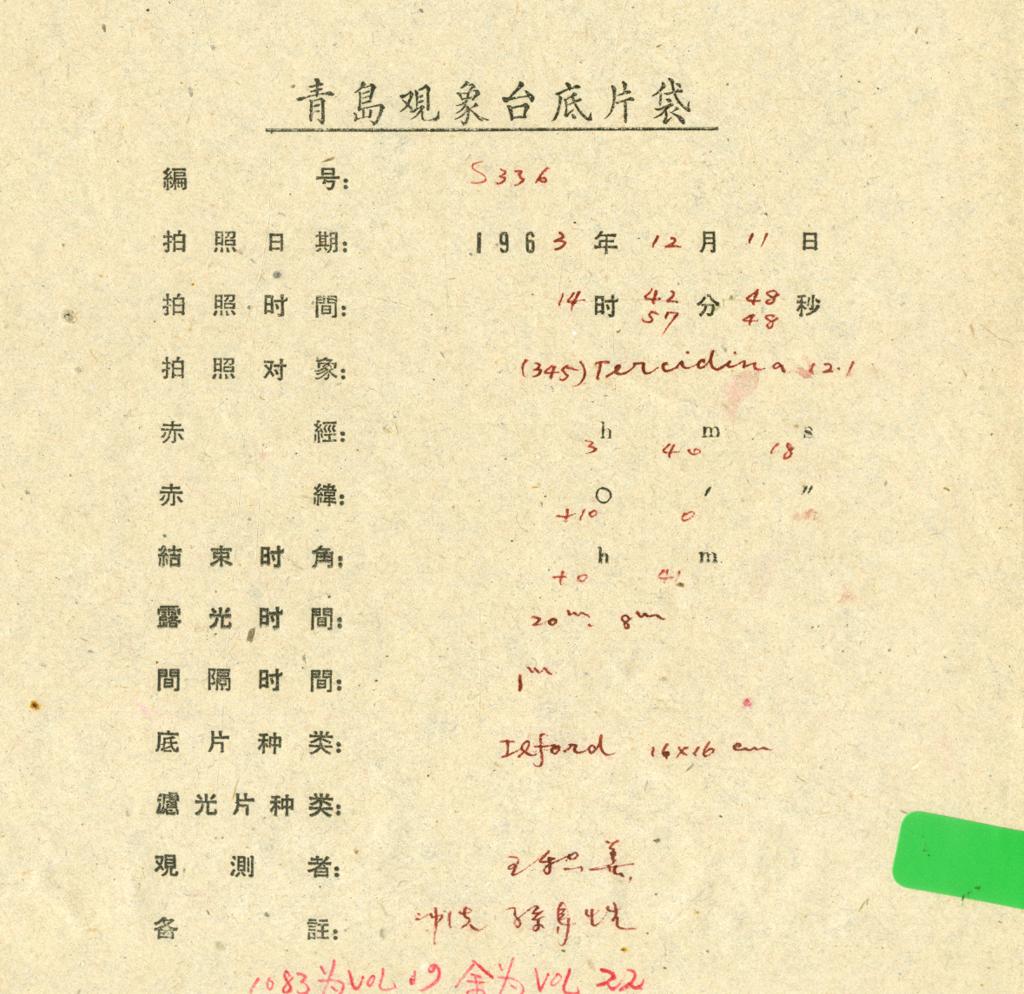 青島观象台底片袋
編 号: S336
拍照日期: 1963年12月11日
拍照时間: 14时42分48秒
57 48
拍照对象: (345) Tercidina 12.1
赤 經: h m s
3 40 18
赤 緯: ○ ′ ″
+10 0
結束时角: h m
+0 41
露光时間: 20m. 8m
間隔时間: 1m
底片种类: Ilford 16×16 cm
濾光片种类:
观測者: 王 善
备 註: 冲洗 孫
1083为VOL 19 余为VOL 22